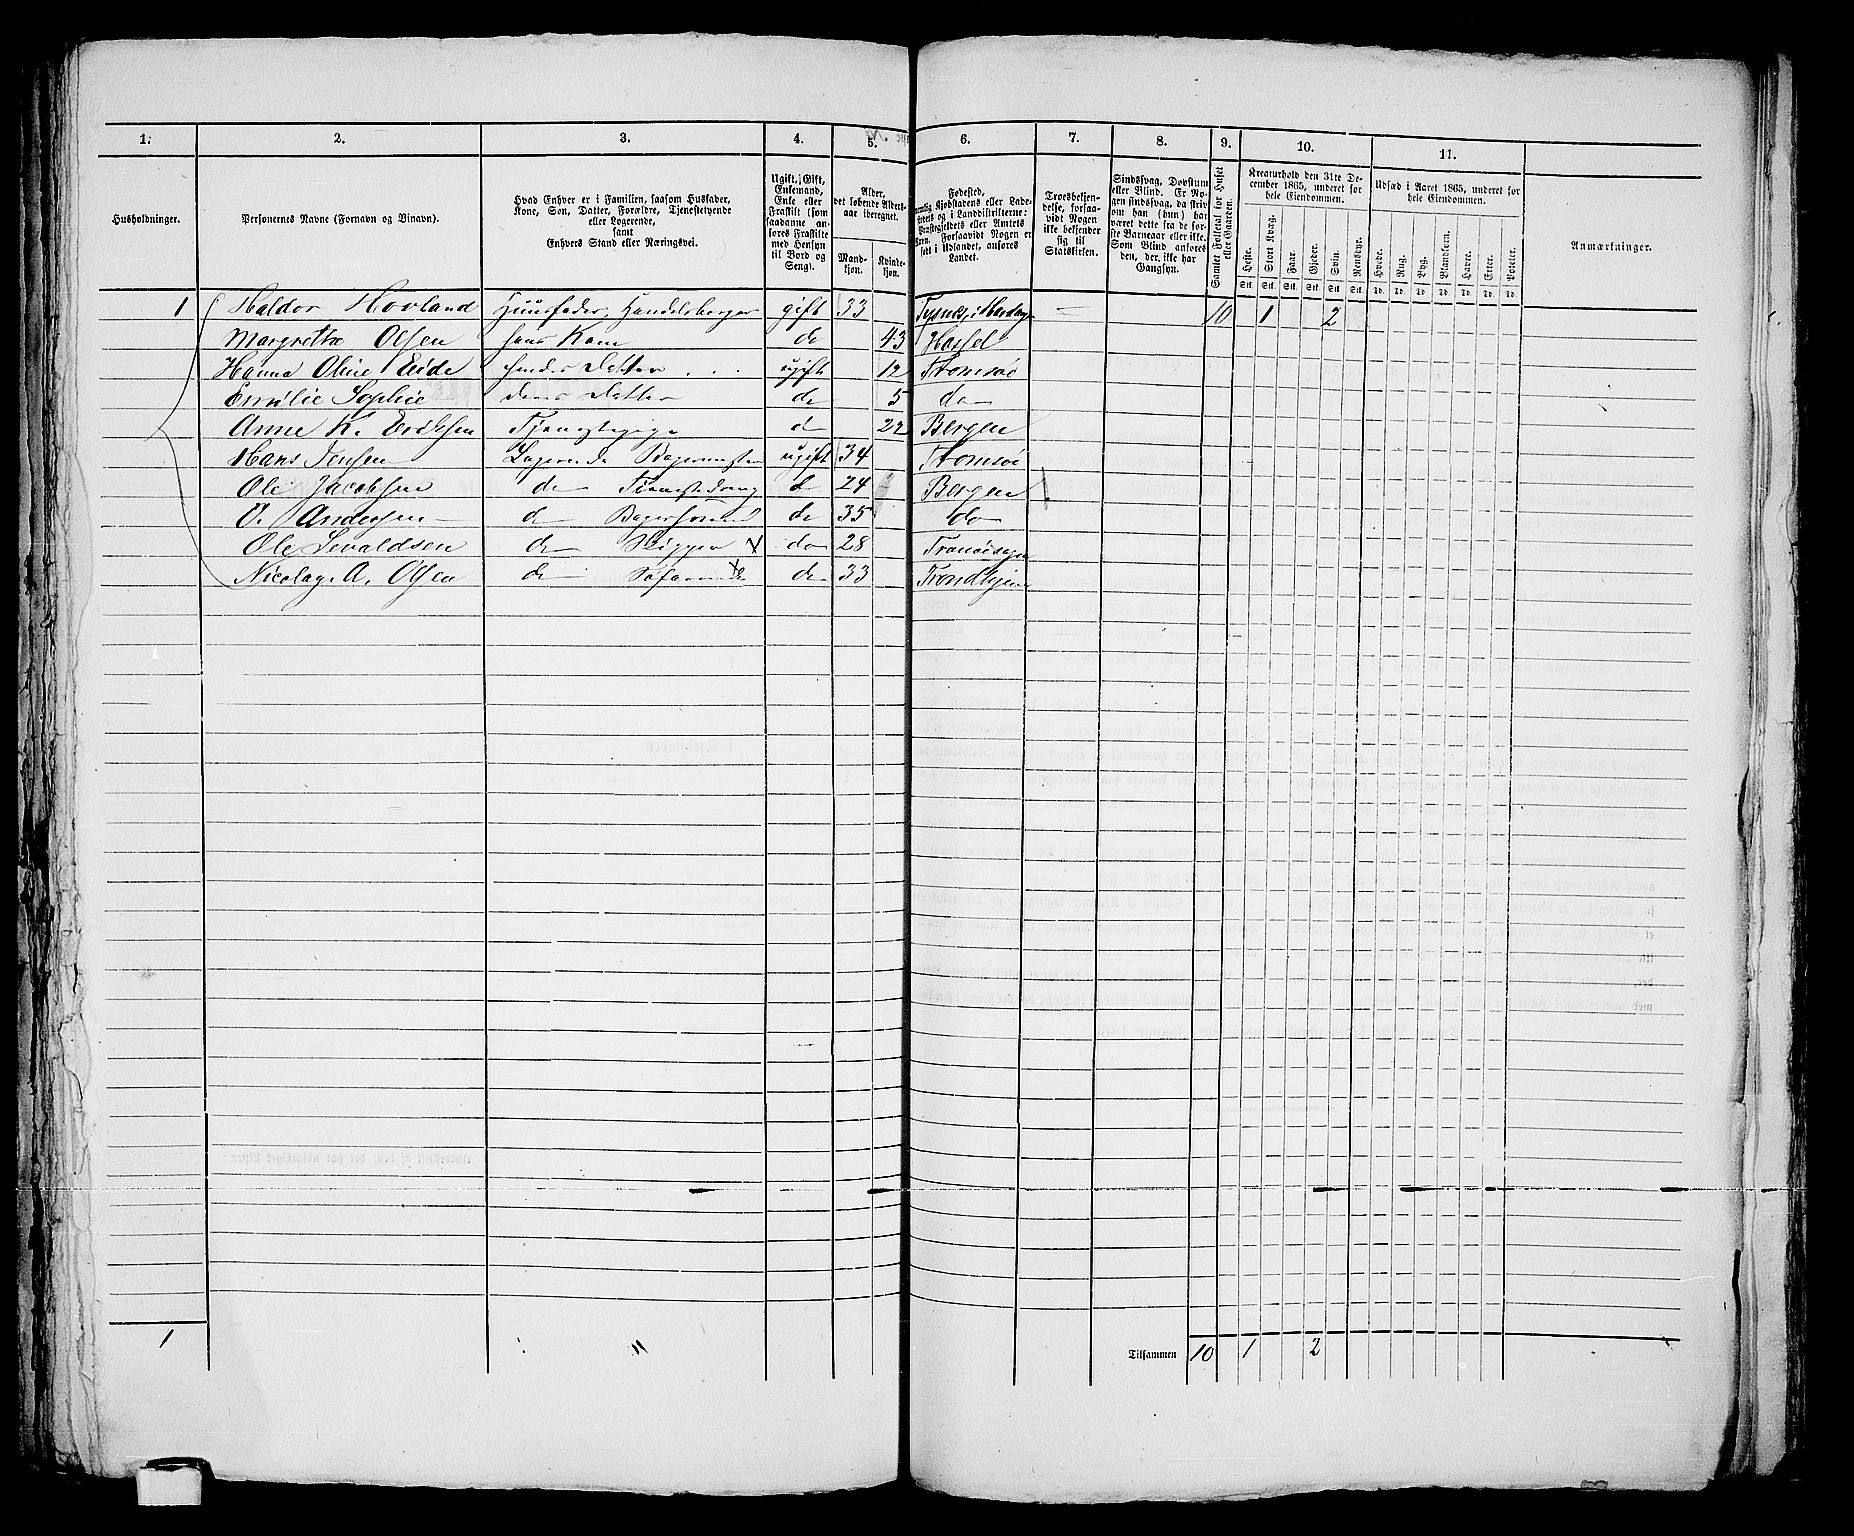 1. 2. 3. 4. 5. 6. 7. 8. 9. 10. 11.
Husholdninger.
Personernes Navne (Fornavn og Binavn).
Hvad Enhver er i Familien, saasom Husfader,
Kone, Søn, Datter, Forældre, Tjenestetyende
eller Logerende,
samt
Enhvers Stand eller Næringsvei.
Ugift, Gift,
Enkemand,
Enke eller
Fraskilt (som
saadanne an-
føres Fraskilte
med Hensyn
til Bord og
Seng).
Alder,
det løbende Alders-
aar iberegnet.
Mand-
kjøn.
Kvinde-
kjøn.
Fødested,
Kjøbstadens eller Lade-
i Landdistrikterne:
eller Amtets
Forsaavidt Nogen er
født i Udlandet, anføres
Landet.
Troesbekjen-
delse, forsaa-
vidt Nogen
ikke bekjender
sig til
Statskirken.
Sindssvag, Døvstum
eller Blind. Er No-
gen sindssvag, da skriv
om han (hun) har
været dette fra de før-
ste Barneaar eller ikke.
Som Blind anføres
den, der ikke har
Gangsyn.
Samlet Folketal for Huset
eller Gaarden.
Kreaturhold den 31te De-
cember 1865, underet for
hele Eiendommen.
Heste. Stort Kvæg. Faar. Gjeder. Svin. Rensdyr.
Stk. Stk. Stk. Stk. Stk. Stk.
Udsæd i Aaret 1865, underet for
hele Eiendommen.
Hvede. Rug. Byg. Blandkorn. Havre. Erter. Poteter.
Td. Td. Td. Td. Td. Td. Td.
Anmærkninger.
1 Haldor Hovland Huusfader, Handelsborger gift 33 10 1 2
Margrethe Olsen hans Kone do 43 Hassel
Hanna Oline Eide hendes Datter ugift 12 Tromsøe
Emilie Sophie deres Datter do 5 do
Anne K. Eriksen Tjenestepige do 22 Bergen
Hans Jensen Logerende Bagermester ugift 34 Tromsøe
Ole Jacobsen do Tjenestedreng do 24 Bergen
O. Andersen do Bagersvend do 35 do
Ole Sevaldsen do Skipper X do 28 Tranøe
Nicolay A. Olsen do Søfarende do 33 Trondhjem
1 11 Tilsammen 10 1 2